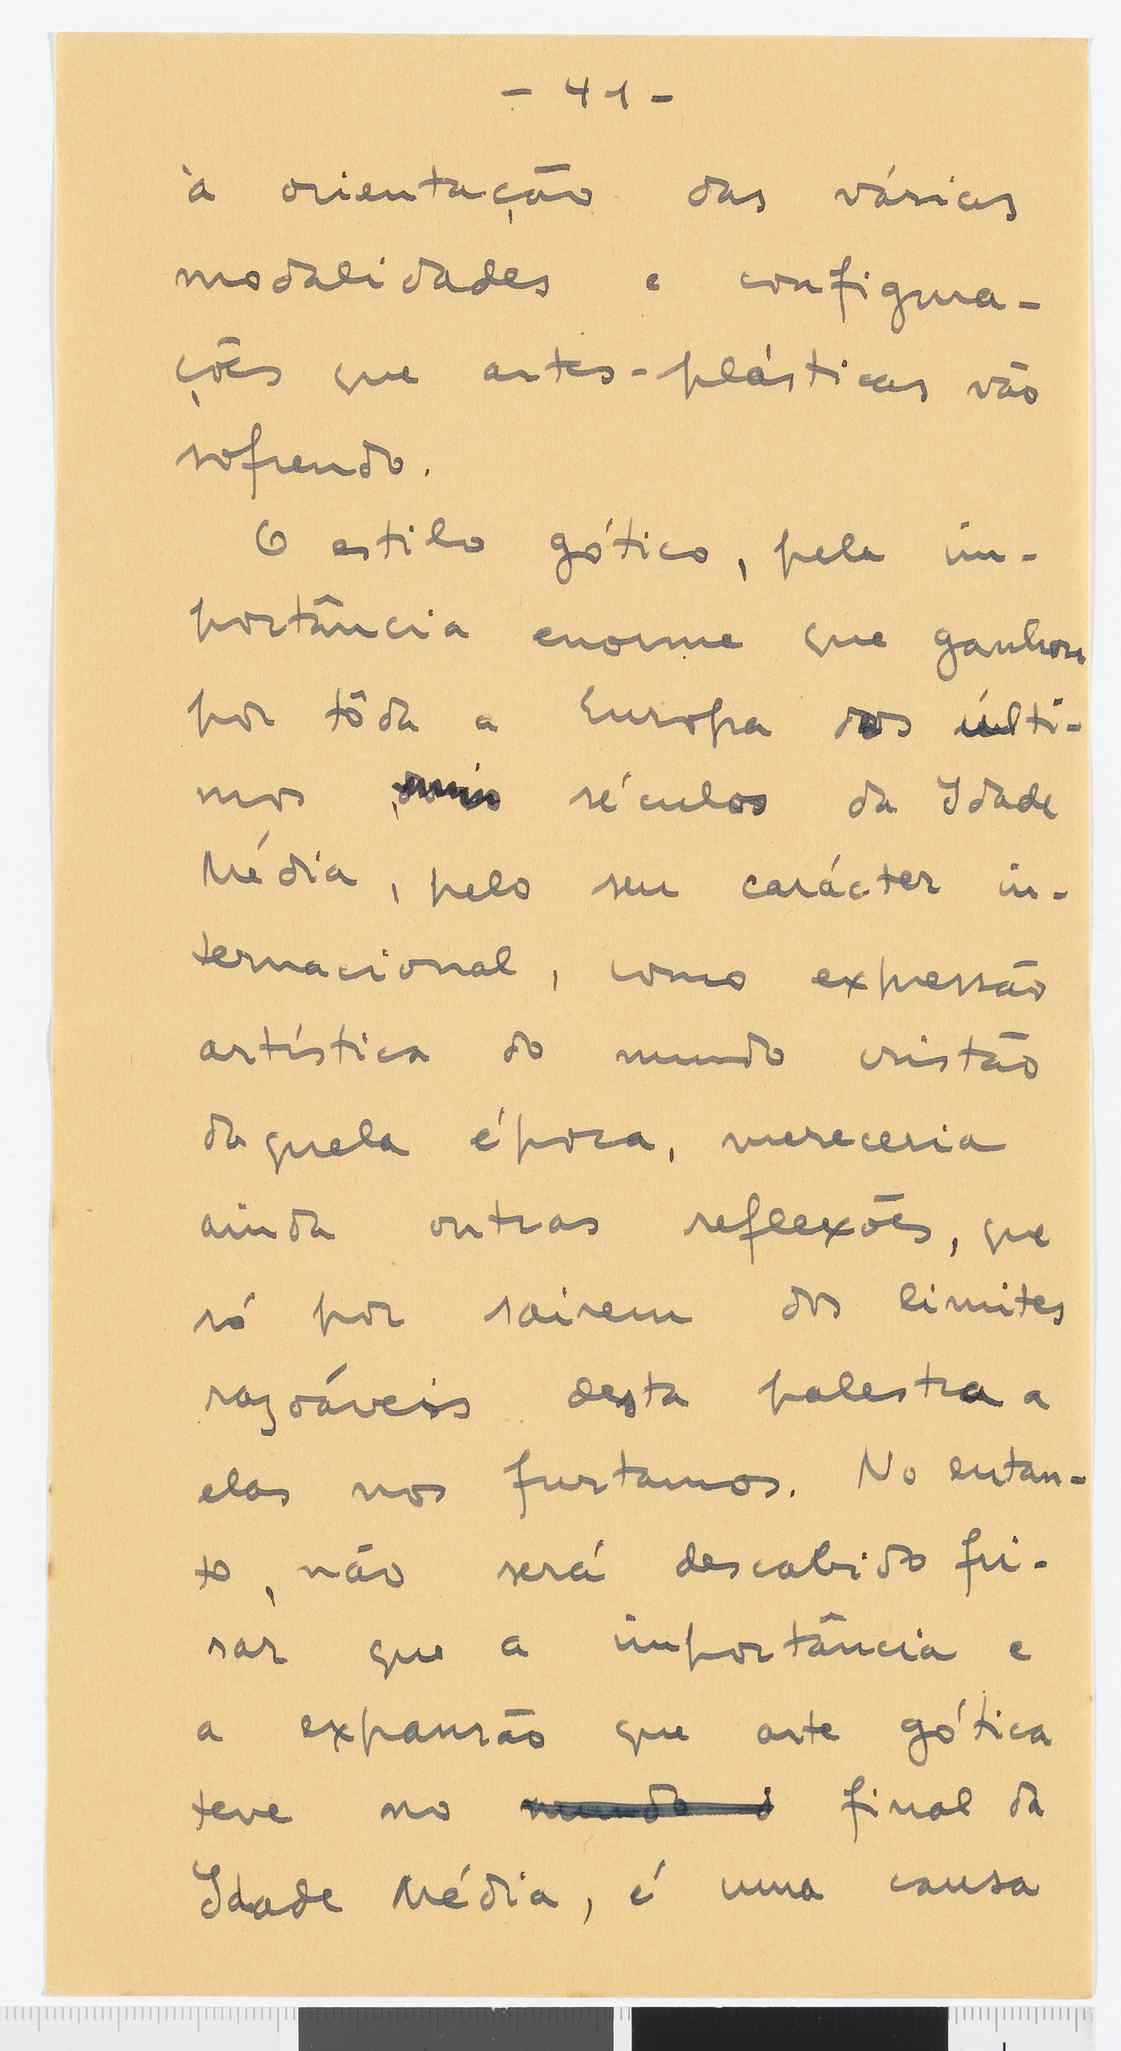 - 41 -
à orientação das várias
modalidades e configura-
ções que artes-plásticas vão
sofrendo.
O estilo gótico, pela im-
portância enorme que ganhou
por tôda a Europa dos últi-
mos séculos da Idade
Média, pelo seu carácter in-
ternacional, como expressão
artística do mundo cristão
daquela época, mereceria
ainda outras reflexões, que
só por sairem dos limites
razoáveis desta palestra a
elas nos furtamos. No entan-
to, não será descabido fri-
sar que a importância e
a expansão que arte gótica
teve no mundo d final da
Idade Média, é uma causa